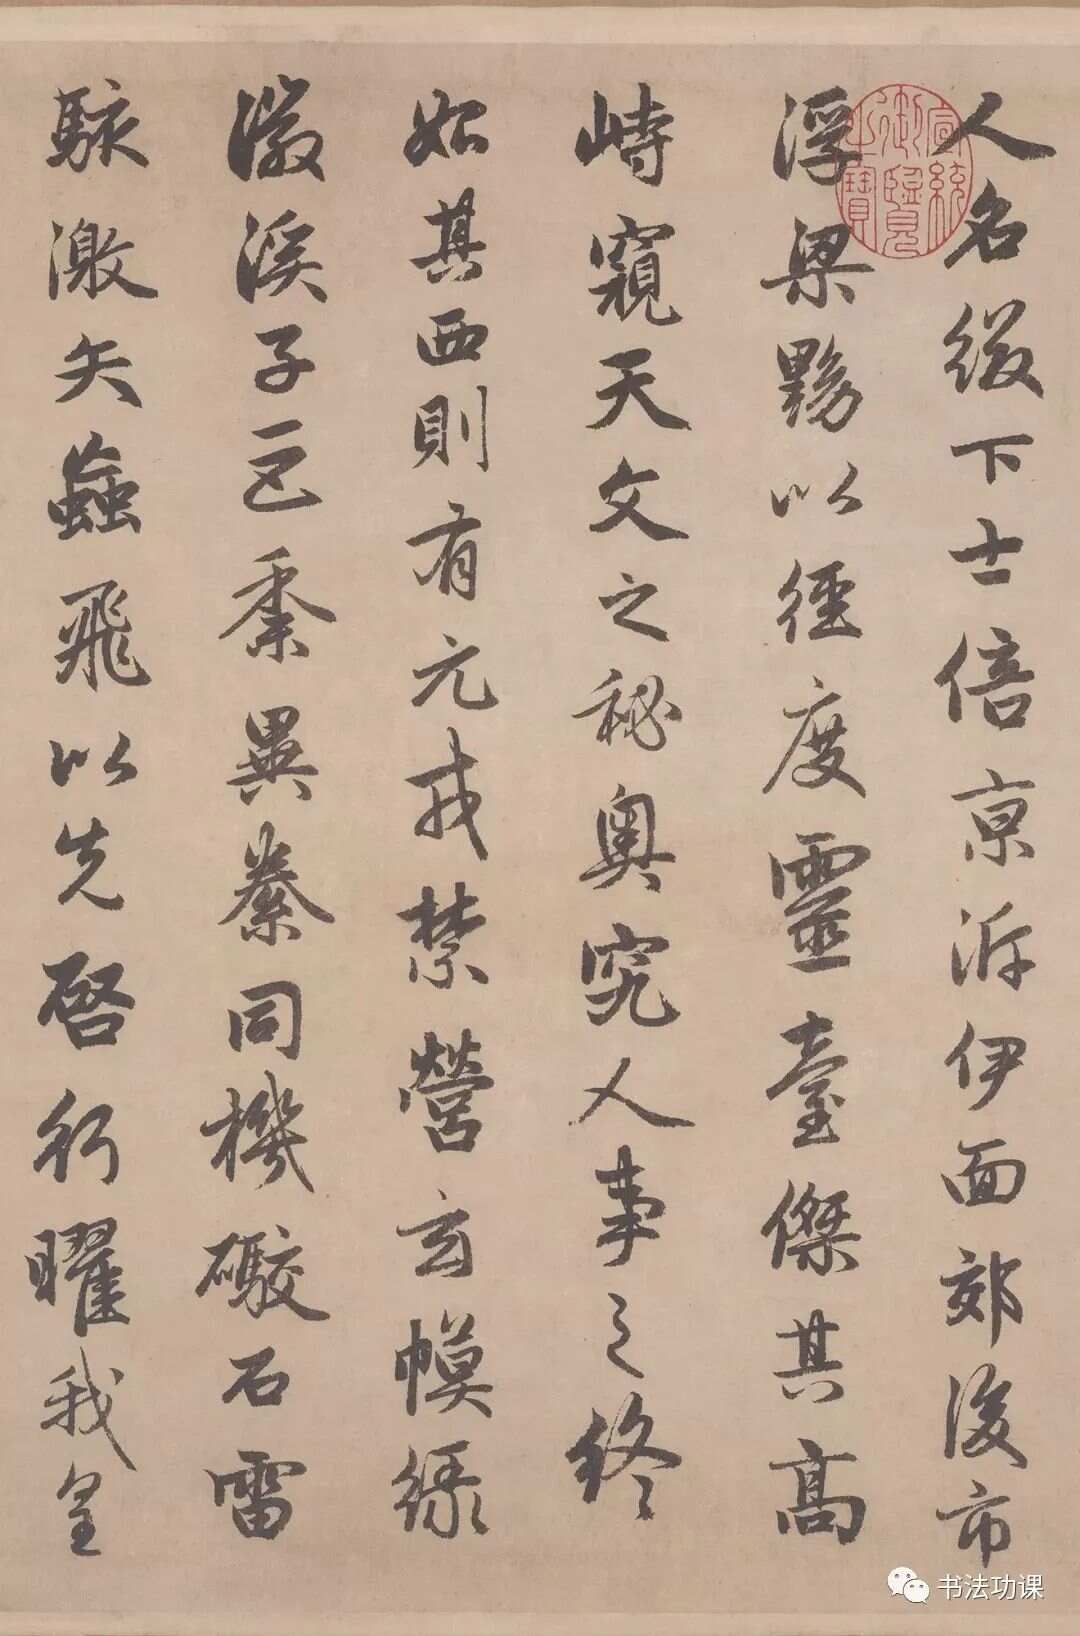 人名綴下士倍京泝伊面郊後市
浮梁黝以徑度靈臺傑其高
峙窺天文之秘奧究人事之終
始其西則有元戎禁營玄幙緑
徽溪子巨黍異絭同機礮石雷
駭激矢蝱飛以先啓行曜我皇
宣統御覽之寶
书法功课